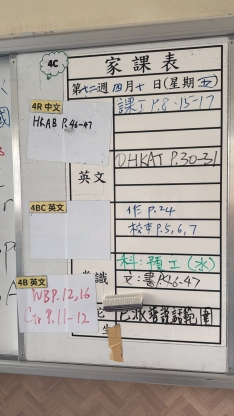 4C
家課表
第十二週 四月十日(星期五)
4R 中文
HKAB P.46-47
課工 P.8-15-17
英文
DHKAT P.30-31
4BC英文
作 P.24
校本 P.5,6,7
科:預工(水)
常識
4B 英文
WB P.12,16
P.11-12
文:書P.26-47